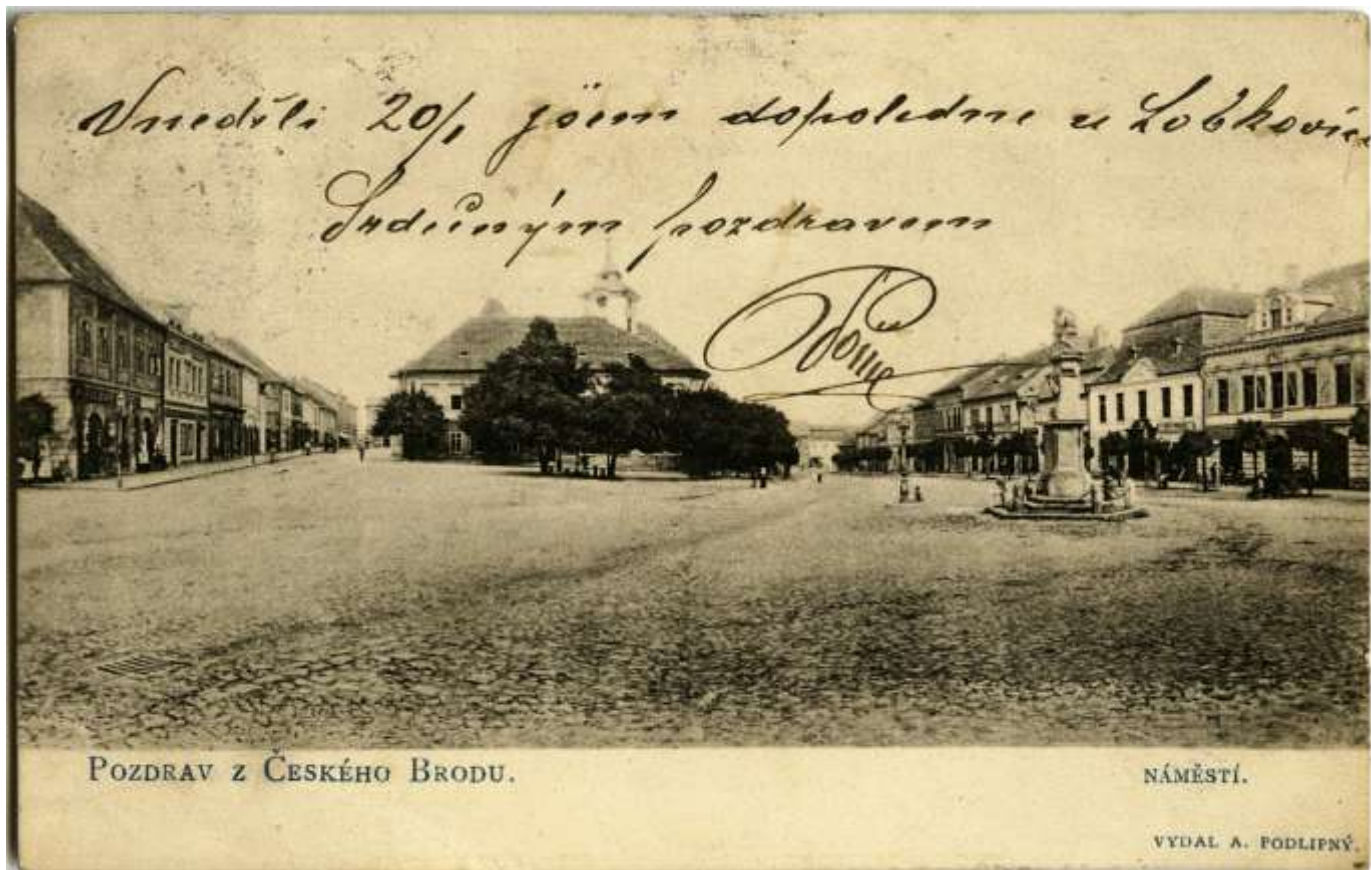 Vneděli 20/1 jsem dopoledne u Lobkovic
Srdečným pozdravem
POZDRAV Z ČESKÉHO BRODU.
NÁMĚSTÍ.
VYDAL A. PODLIPNÝ.